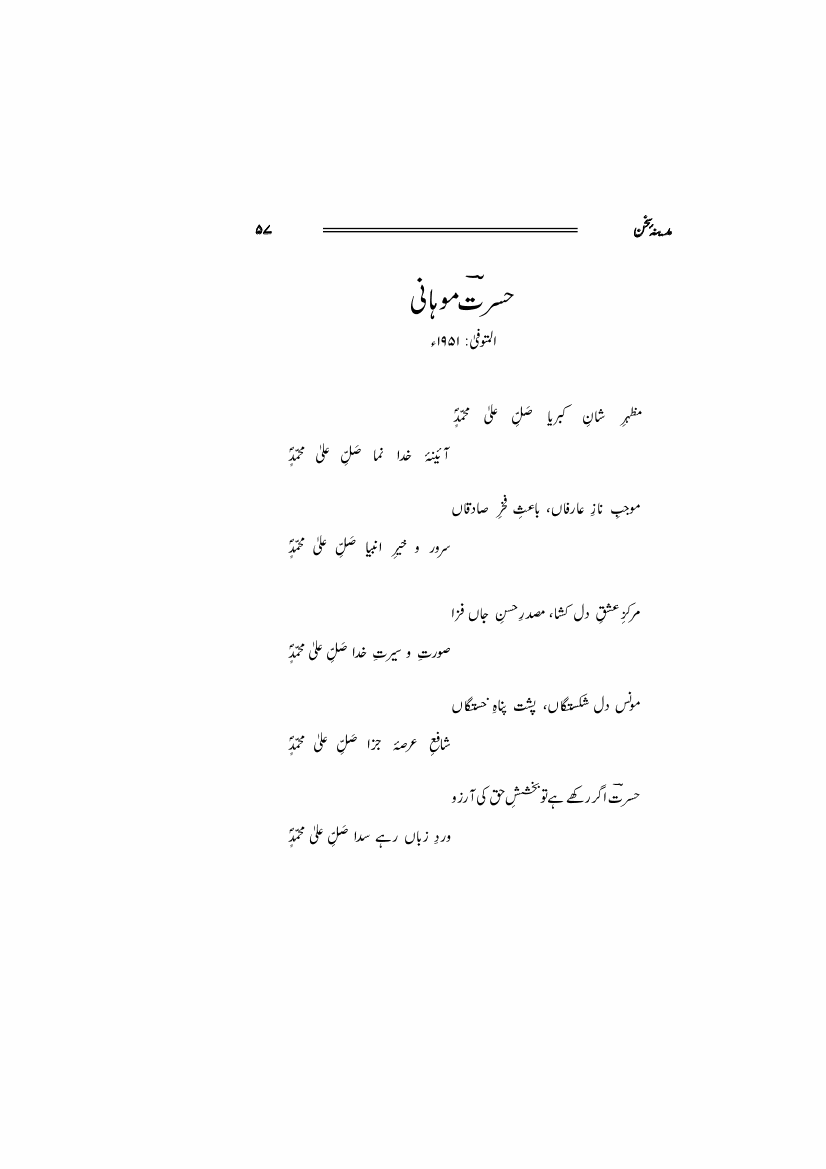 مدینۂ سخن ۵۷
حسرتؔ موہانی
المتوفیٰ: ۱۹۵۱ء
مظہرِ شانِ کبریا صَلِّ عَلیٰ محمّدٍؐ
آئینۂ خدا نما صَلِّ عَلیٰ محمّدٍؐ
موجبِ نازِ عارفاں، باعثِ فخرِ صادقاں
سرور و خیرِ انبیا صَلِّ عَلیٰ محمّدٍؐ
مرکزِ عشقِ دل کشا، مصدرِ حسنِ جاں فزا
صورتِ و سیرتِ خدا صَلِّ عَلیٰ محمّدٍؐ
مونس دل شکستگاں، پشت پناہِ خستگاں
شافعِ عرصۂ جزا صَلِّ عَلیٰ محمّدٍؐ
حسرتؔ اگر رکھے ہے تو بخششِ حق کی آرزو
وردِ زباں رہے سدا صَلِّ عَلیٰ محمّدٍؐ